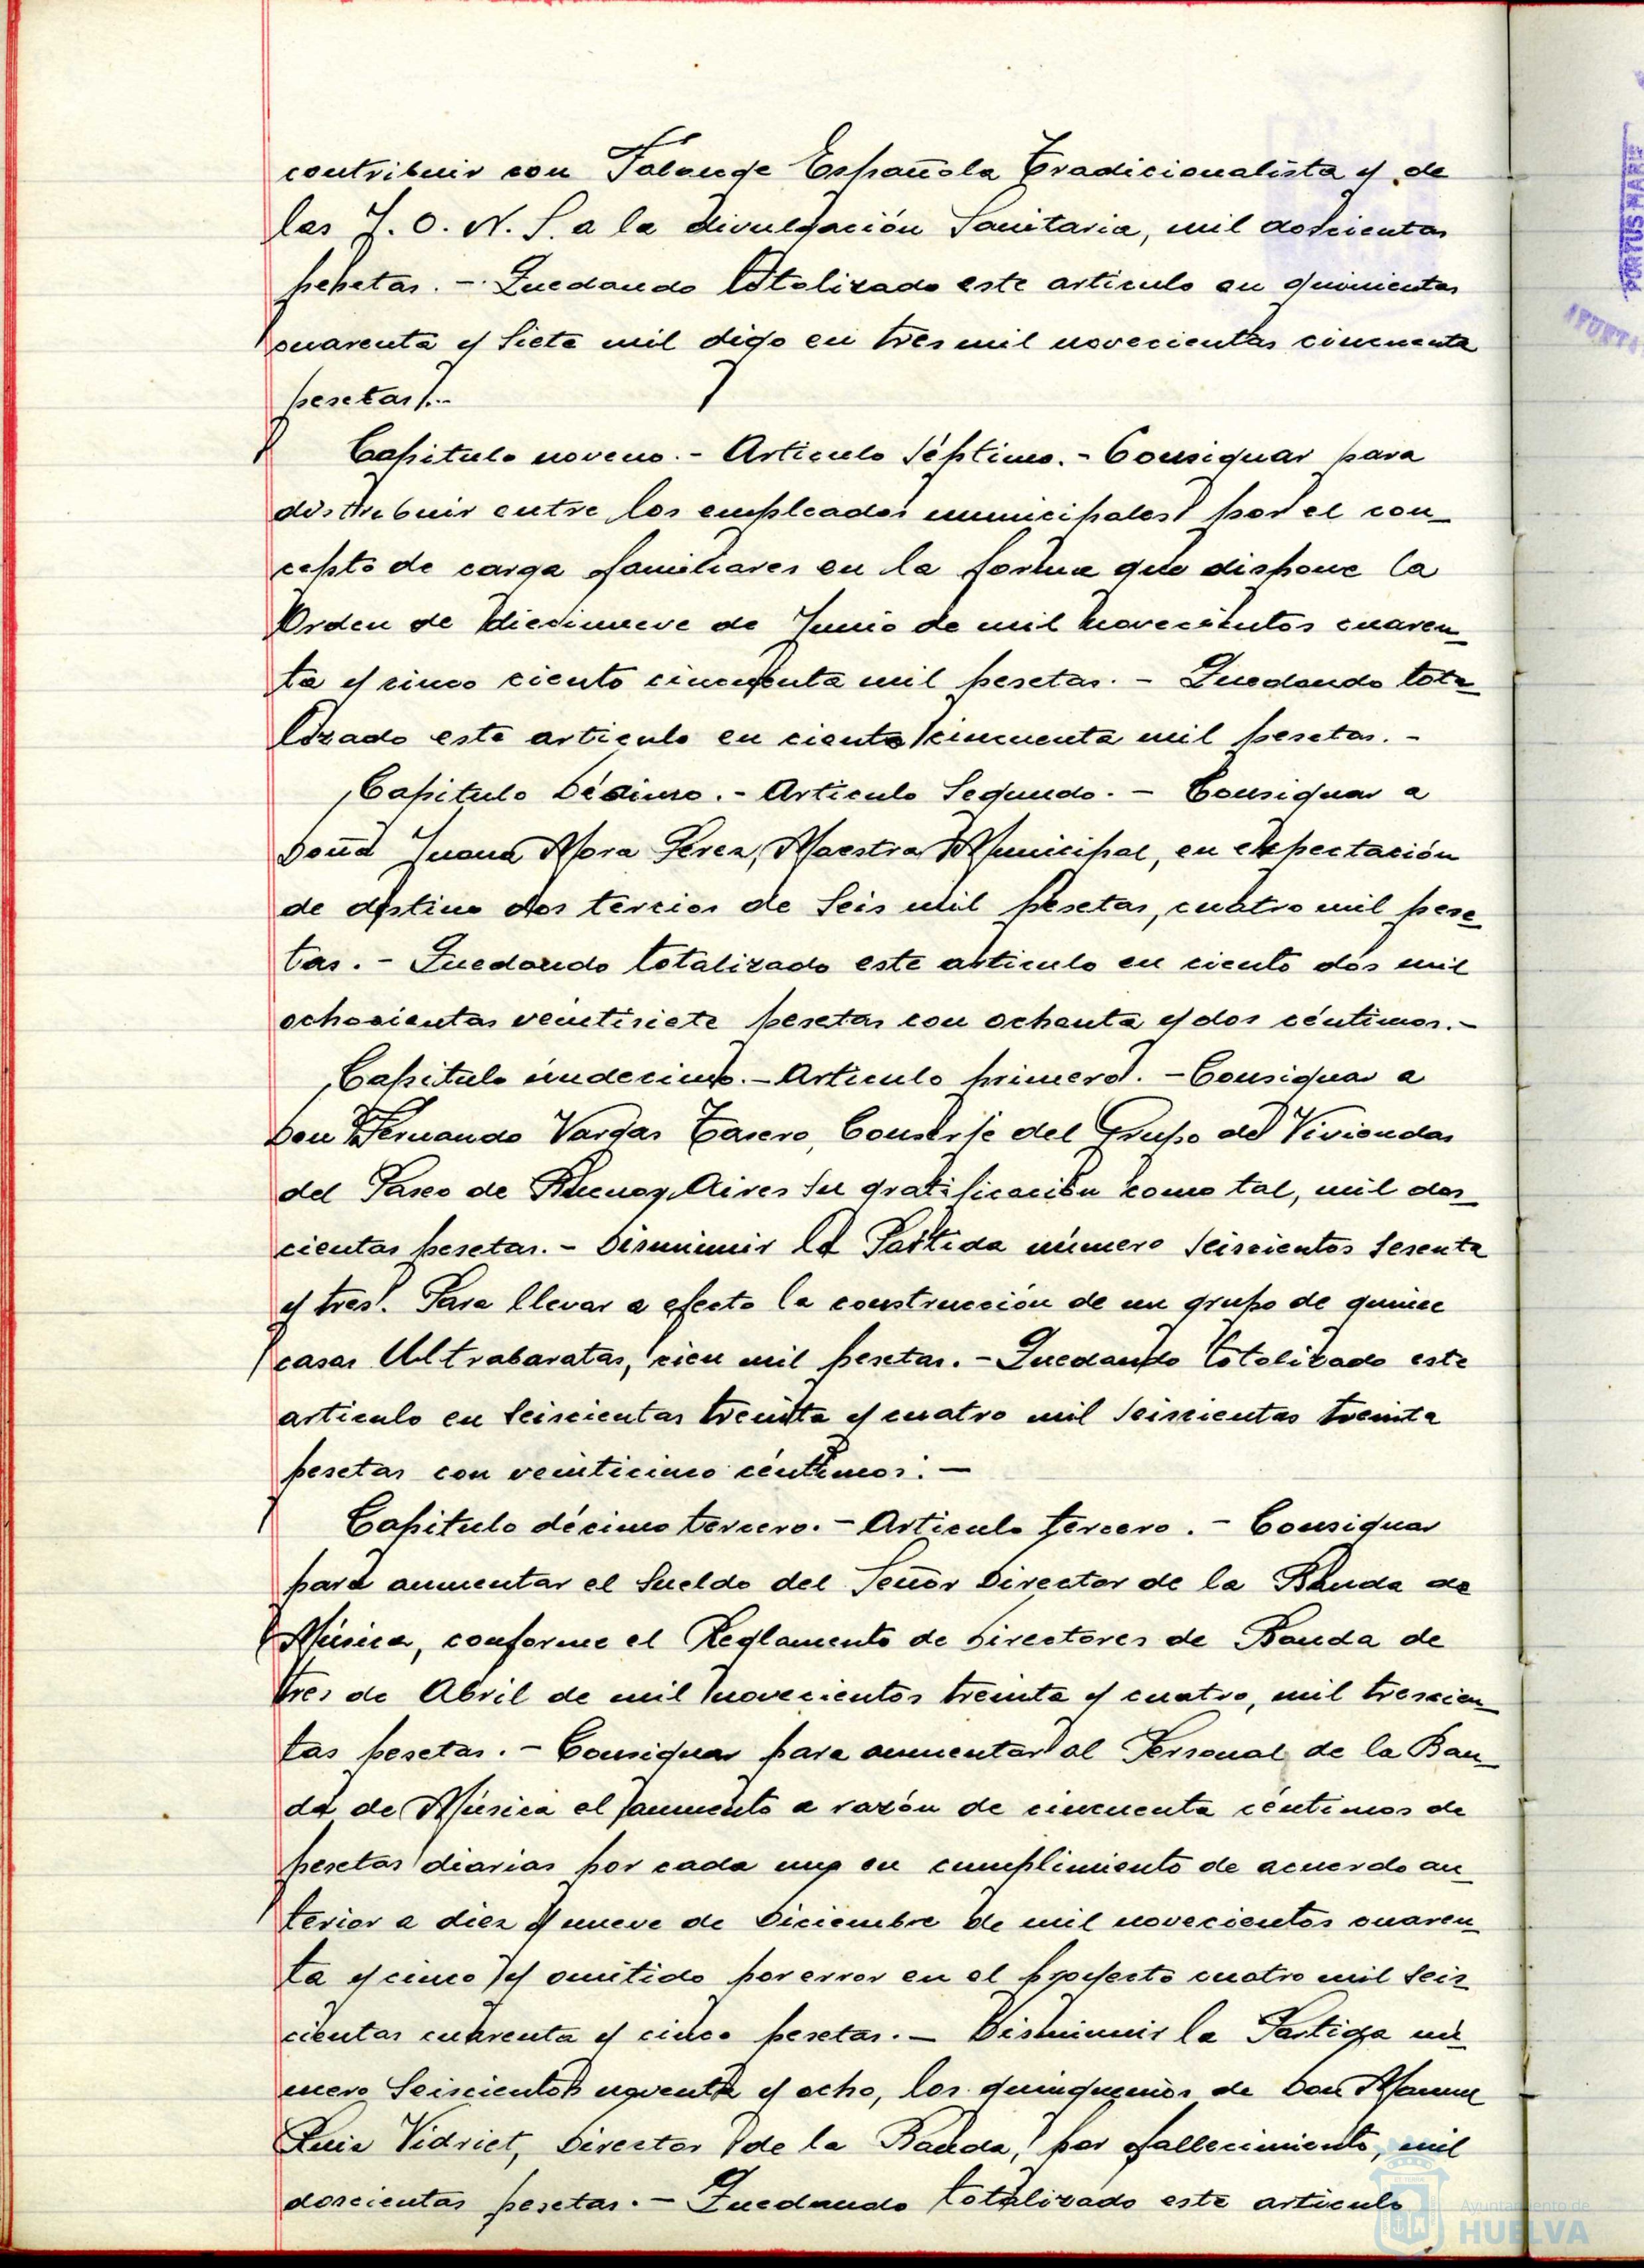 contribuir con Falange Española Tradicionalista y de
las J. O. N. S. a la divulgación Sanitaria, mil doscientas
pesetas. - Quedando totalizado este articulo en quinientas
cuarenta y siete mil digo en tres mil novecientas cincuenta
pesetas.-
Capitulo noveno.- Articulo Séptimo.- Consignar para
distribuir entre los empleados municipales por el con_
cepto de carga familiares en la forma que dispone la
Orden de diecinueve de Junio de mil novecientos cuaren_
ta y cinco ciento cincuenta mil pesetas. - Quedando tota_
lizado este articulo en ciento cincuenta mil pesetas. -
Capitulo Décimo.- Articulo Segundo. - Consignar a
Doña Juana Mora Perez, Maestra Municipal, en expectación
de destino dos tercios de Seis mil pesetas, cuatro mil pese_
tas. - Quedando totalizado este articulo en ciento dos mil
ochocientas veintisiete pesetas con ochenta y dos céntimos.-
Capitulo úndecimo.- Articulo primero. - Consignar a
Don Fernando Vargas Casero, Conserje del Grupo de Viviendas
del Paseo de Buenos Aires su gratificación como tal, mil dos_
cientas pesetas. - Disminuir la Partida número seiscientos sesenta
y tres. Para llevar a efecto la construcción de un grupo de quince
casas Ultrabaratas, cien mil pesetas. - Quedando totalizado este
articulo en seiscientas treinta y cuatro mil seiscientas treinta
pesetas con veinticinco céntimos. -
Capitulo décimo tercero. - Articulo tercero. - Consignar
para aumentar el sueldo del Señor Director de la Banda de
Música, conforme el Reglamento de Directores de Banda de
tres de Abril de mil novecientos treinta y cuatro, mil trescien_
tas pesetas. - Consignar para aumentar al Personal de la Ban_
da de Música el aumento a razón de cincuenta céntimos de
pesetas diarias por cada uno en cumplimiento de acuerdo an_
terior a diez y nueve de Diciembre de mil novecientos cuaren_
ta y cinco y omitido por error en el proyecto cuatro mil seis_
cientas cuarenta y cinco pesetas. - Disminuir la Partida nú_
mero Seiscientos noventa y ocho, los quinquenios de Don Manuel
Ruiz Vidriet, Director de la Banda, por fallecimiento, mil
doscientas pesetas. - Quedando totalizado este articulo
PORTUS MARIS
Ayuntamiento de
HUELVA